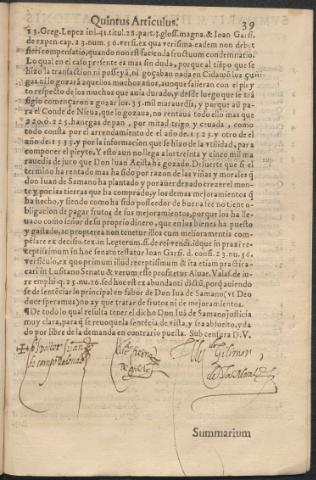 Quintus Articulus. 39
23. Greg. Lopez in l. 41. titul. 28. part. 3. gloss. magna. & Ioan Garsi.
de expen. cap. 23. num. 56. versi. ex qua verissima. eadem non debet
fieri compensatio, quando non est facienda fructuum condemnatio.
Lo qual en el caso presente es mas sin duda, porque al tiẽpo que se
hizo la transaction ni posseyá, ni goçaban nada en Cidamõ los
ni lo gozará aquellos muchos años, aunque salieran con el pley
to respecto de los muchos que auia durado, y desde luego que se trã
sigio començaron a gozar los 35. mil marauedis, y porque aũ pa-
ra el Conde de Nieua, que lo gozaua, no rentaua todo ello mas que
220. o. 225. hanegas de pan, por mitad trigo y ceuada, como
todo consta por el arrendamiento de el año de. 1525. y otro de el
año de. 1535. y por la informacion que se hizo de la vtilidad, para
componer el pleyto. Y esto aun no llega a los treinta y cinco mil ma
rauedis de juro que Don Iuan Acuña ha gozado. De suerte que si el
termino ha rentado mas ha sido por razon de las viñas y morales q̃
don Iuan de Samano ha plantado y por auer desado crezer el mon-
te y por las tierras que ha comprado, y los demas mejoramientos q̃
ha hecho, y siendo como ha sido posseedor de buena fee no tiene o-
bligacion de pagar frutos de sus mejoramientos, porque los ha lle-
uado como señor de su proprio dinero, que en los bienes ha puesto
y gastado, ac propterea non tenetur illos cum melioramentis com-
pẽsare ex decisio. tex. in l. emptorem. ff. de rei vendi.
ceptissimum in hoc senatu testatur Ioan Garsi. d. consi. 23. nu. 56.
versiculo, ex quo primum illud receptissimum & ita etiam practica-
cari in Lusitano Senatu & verum esse profitetur Aluar. Valas. de iu-
re emphi q. 25. nu. 26. sed hoc est ex abundanti dictũ, porq̃ auiendo
se de sentẽciar lo principal en fabor de Don Iuã de Samano (vt Deo
duce speramus) no ay que tratar de frutos ni de mejoramientos.
¶ De todo lo qual resulta tener el dicho Don Iuã de Samano justicia
muy clara, para q̃ se reuoque la sentẽcia de vista, y sea absuelto, y da
do por libre de la demanda en contrario puesta. Sub censura D. V.
Summarium